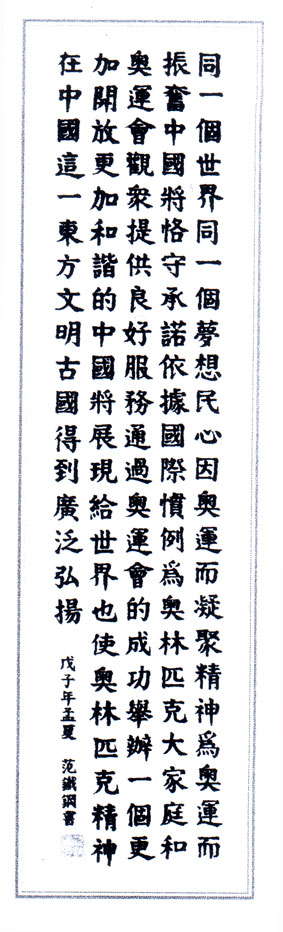 同一個世界同一個夢想民心因奧運而凝聚精神爲奧運而
振奮中國將恪守承諾依據國際慣例爲奧林匹克大家庭和
奧運會觀衆提供良好服務通過奧運會的成功舉辦一個更
加開放更加和諧的中國將展現給世界也使奧林匹克精神
在中國這一東方文明古國得到廣泛弘揚
戊子年孟夏 范鐵鋼書